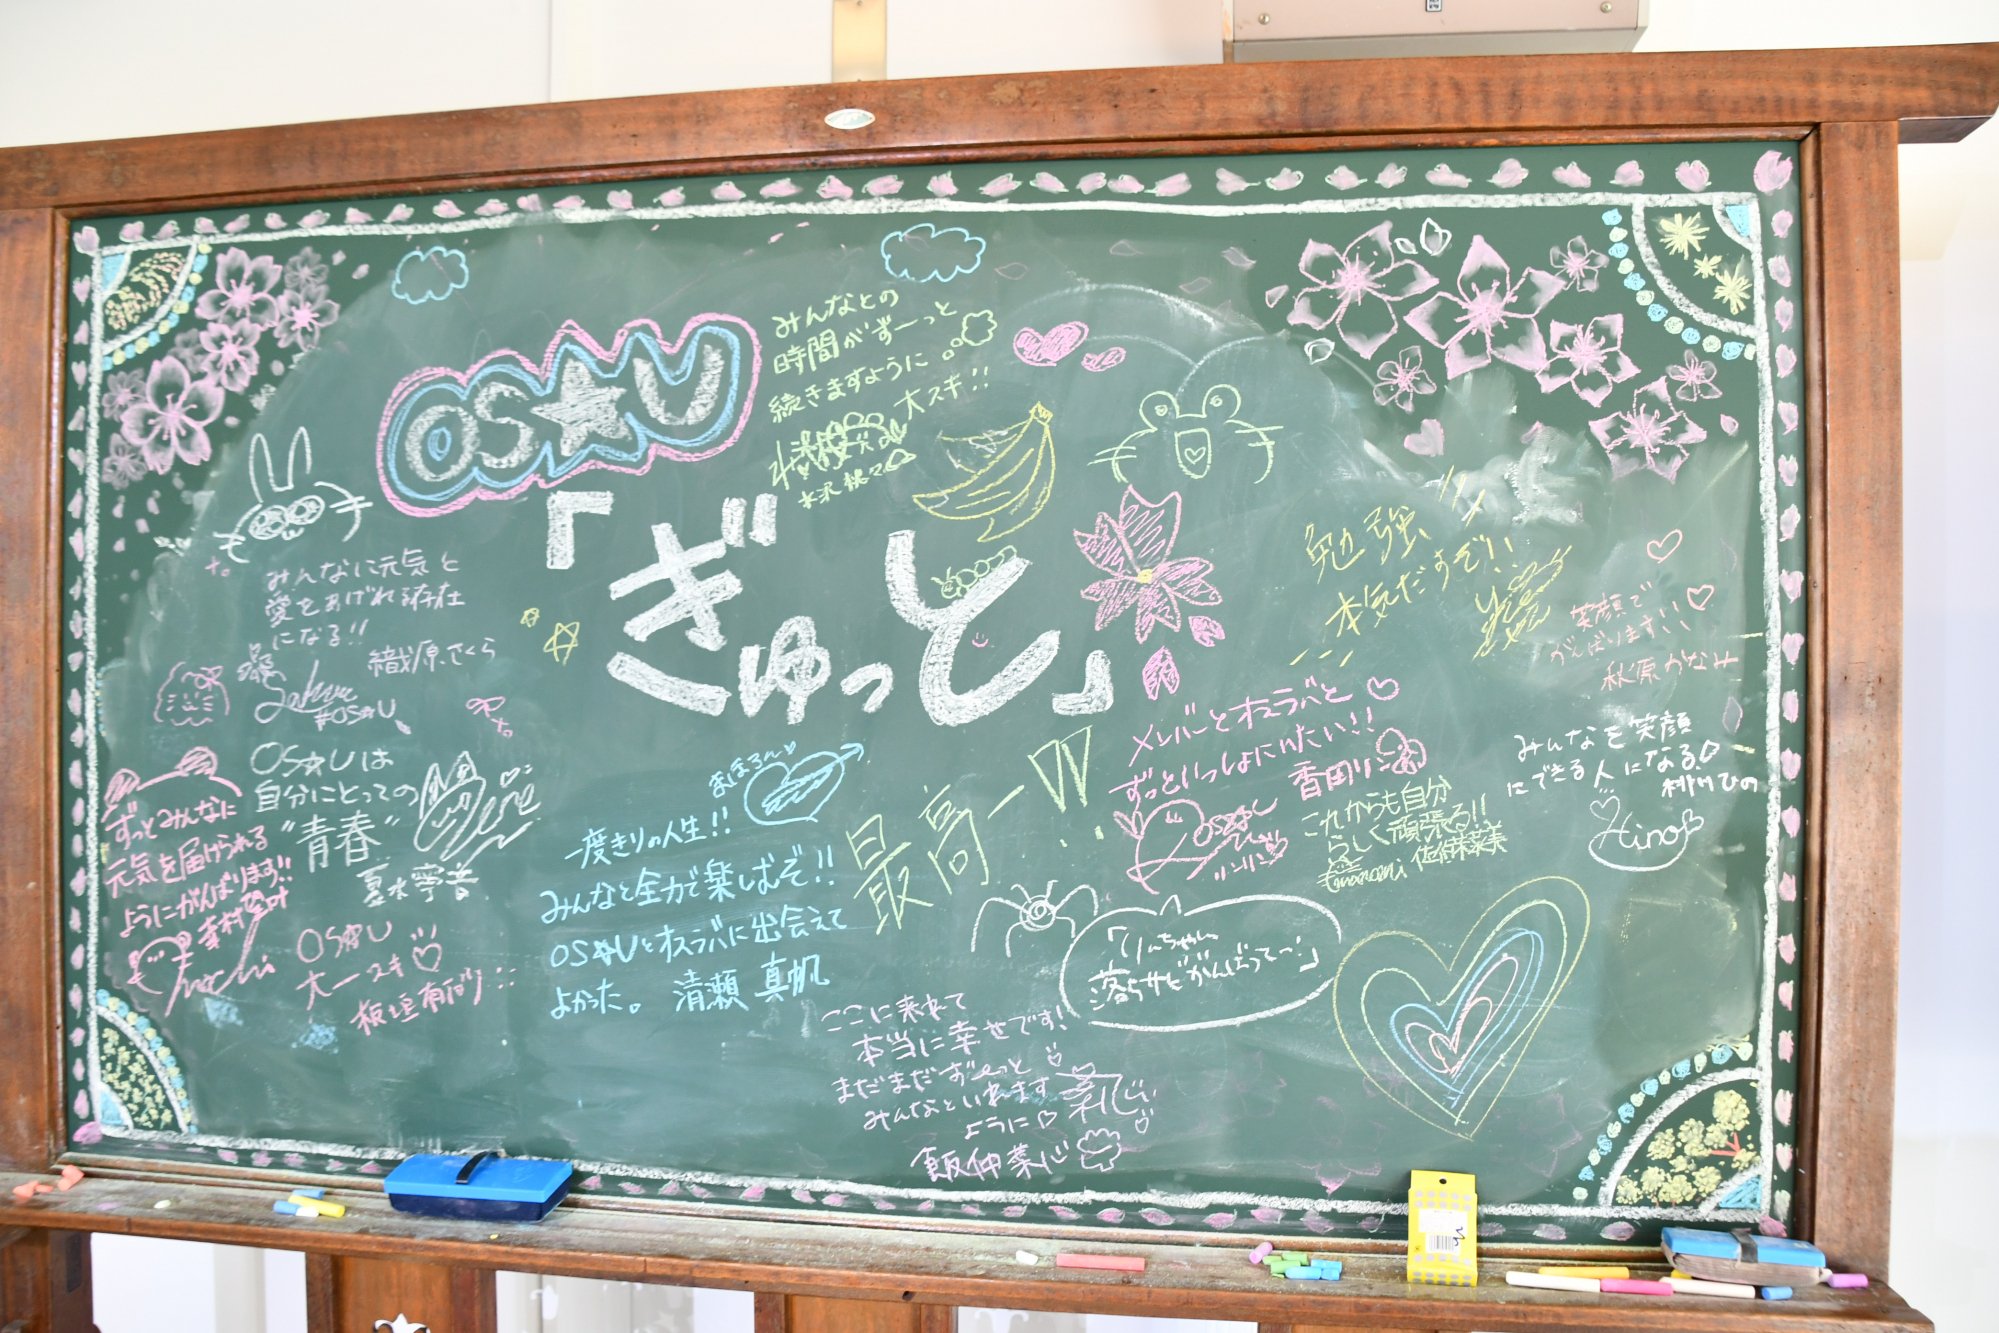 OS★U
「ぎゅっと」
みんなとの
時間がずーっと
続きますように
大スキ!!
水沢
勉強
本気だすぞ!!
笑顔で
がんばります
秋原かなみ
みんなに元気と
愛をあげれる存在
になる!!
織原さくら
Sakura
#OS☆U
OS☆Uは
自分にとっての
"青春"
夏水寧音
ずっとみんなに
元気を届けられる
ようにがんばります!!
OS☆U
大一スキ♡
まほろん♡
一度きりの人生!!
みんなと全力で楽しむぞ!!
OS☆Uとオスラバに出会えて
よかった。 清瀬 真帆
最高ー!!
メンバーとオスラバと♡
ずっといっしょにいたい!!
香田リン
OS☆U
リンリン
これからも自分
らしく頑張る!!
みんなを笑顔
にできる人になる♡
ひの
Hino
「りんちゃん
落ちサビがんばってっ」
ここに来れて
本当に幸せです!
まだまだずーっと
みんなといれます
ように♡